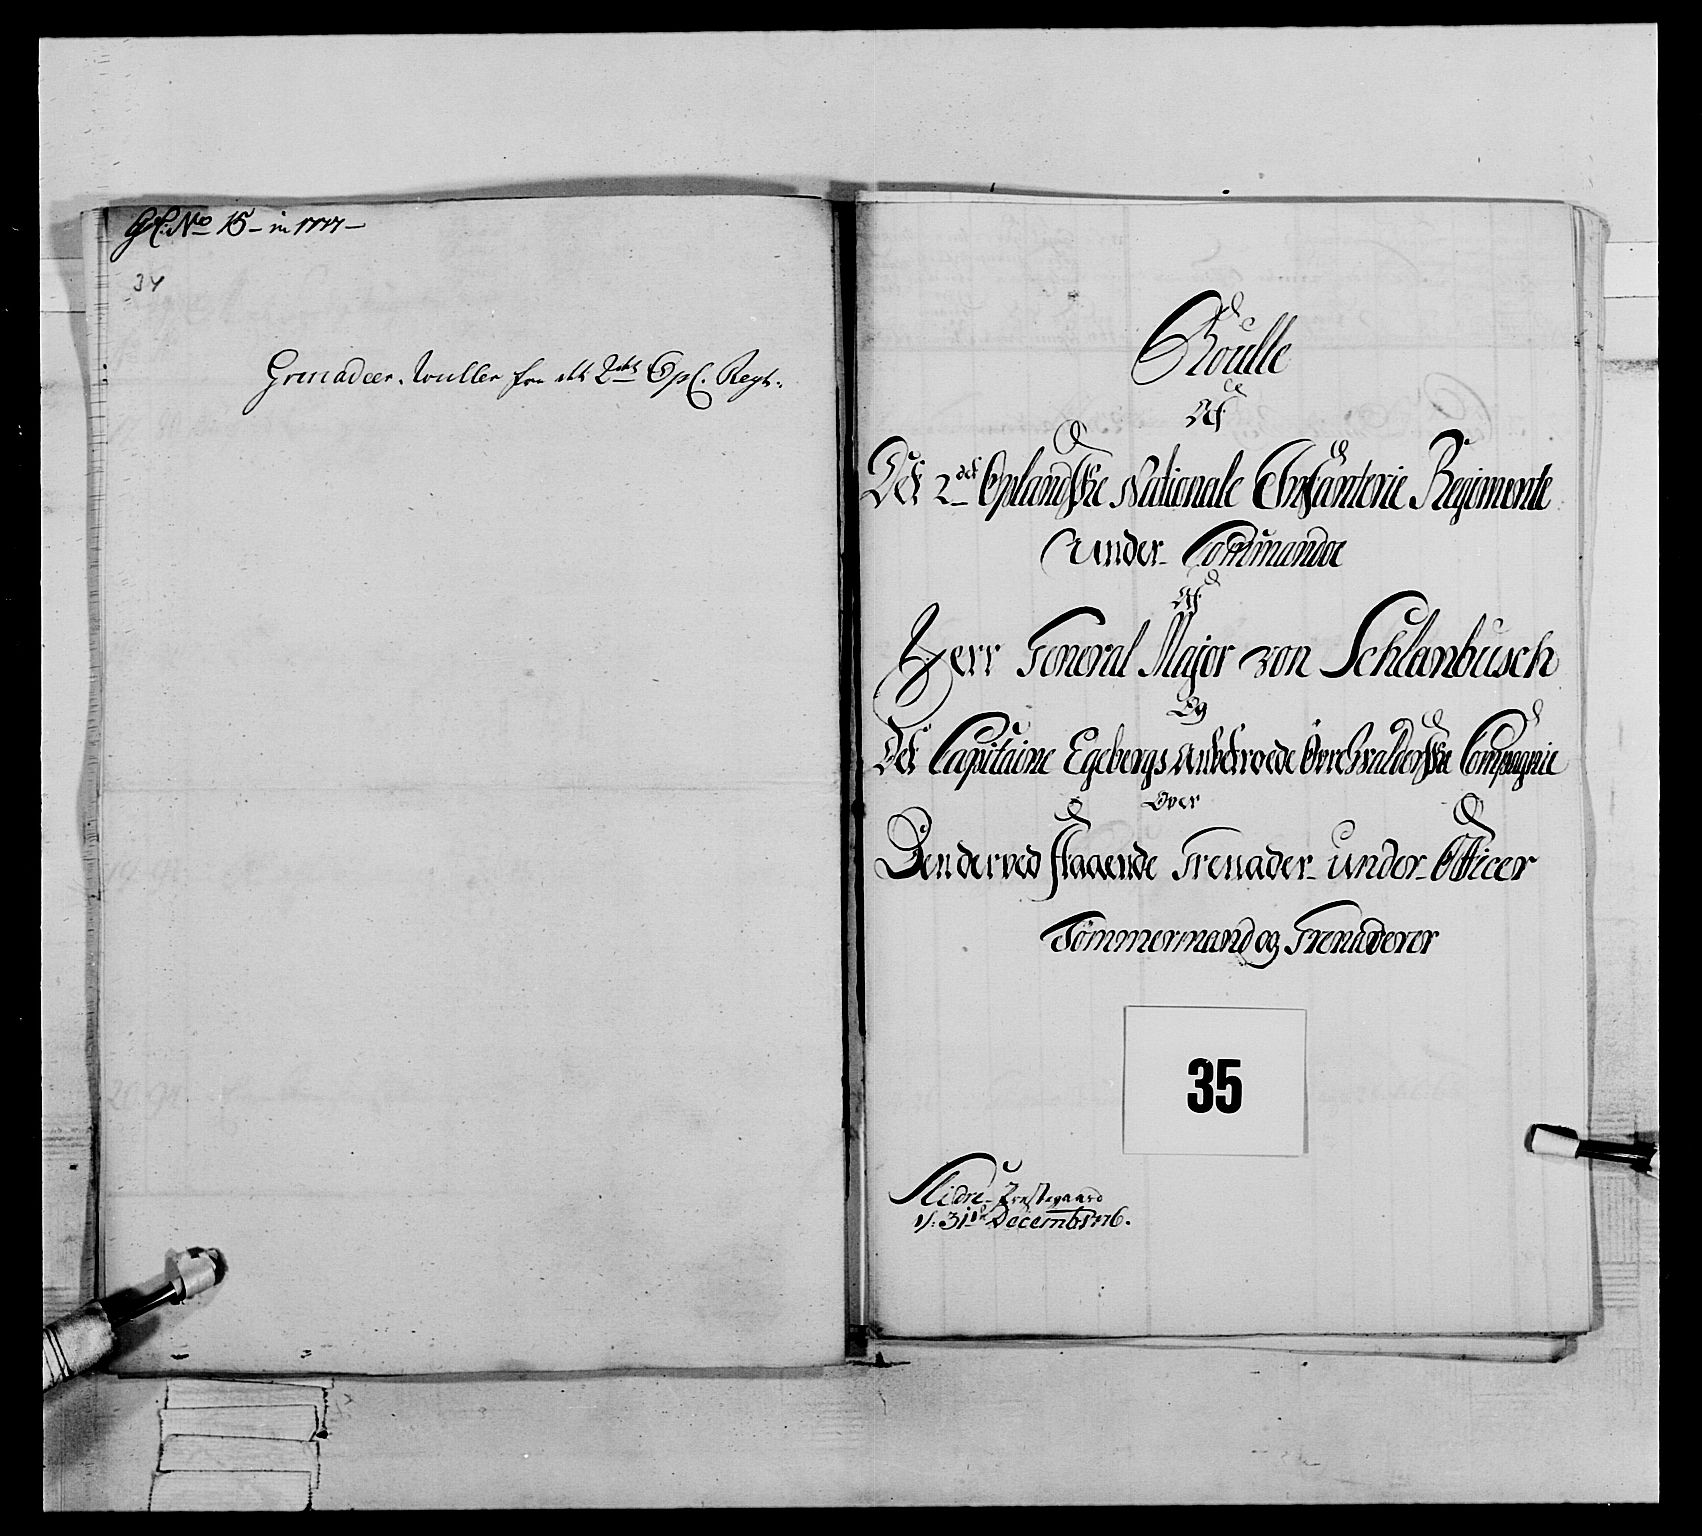 Gl: No 15 – in 1777 –
34
Grenadeer. Ruller fra det 2det Opl. Regt:
Roulle
Af
Det 2det Oplandske Nationale Infanterie Regimente
Under Commando
Af
Herr General Major von Schlanbusch
Og
Det Capitaine Egebergs anbetroede Compagnie
Over
Den derved staaende Grenader under Officer
Tömmermand og Grenaderer
35
Slidre Prestegaard
d: 31te Decemb: 1776.